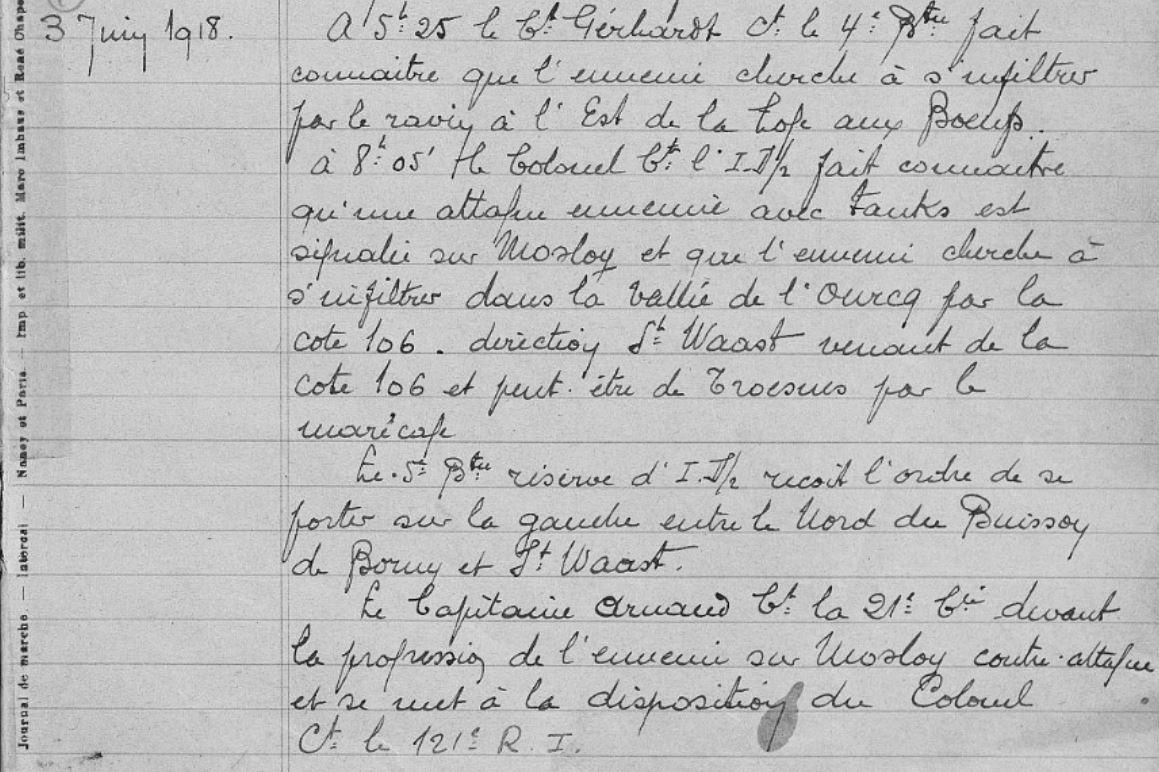 3 Juin 1918.
A 5h 25 le Ct Gérhardt Ct le 4e Bton fait
connaitre que l'ennemi cherche à s'infiltrer
par le ravin à l'Est de la Loge aux Boeufs.
à 8h 05' le Colonel Ct l'I.D/2 fait connaitre
qu'une attaque ennemie avec tanks est
signalée sur Mosloy et que l'ennemi cherche à
s'infiltrer dans la vallée de l'Ourcq par la
cote 106. direction St Waast venant de la
cote 106 et peut-être de Troesnes par le
marécage
Le 5e Bton réserve d'I.D/2 recoit l'ordre de se
porter sur la gauche entre le Nord du Buisson
de Borny et St Waast.
Le Capitaine Arnaud Ct la 21e Cie devant
la progression de l'ennemi sur Mosloy contre-attaque
et se met à la disposition du Colonel
Ct le 121e R.I.
Journal de marche. — Intercal — Nancy et Paris — Imp. et lib. milit. Marc Imhaus et René Chape